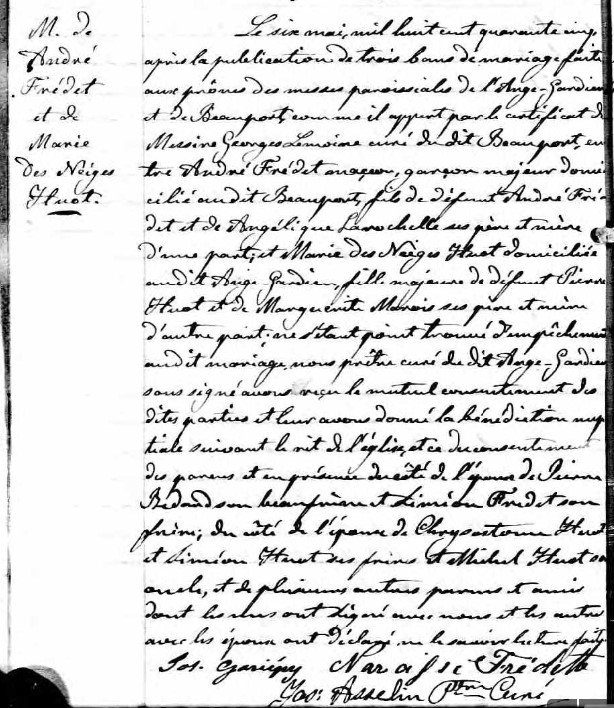 M. de
André
Frédet
et de
Marie
Des Nèiges
Huot.
Le six mai, mil huit cent quarante cinq,
après la publication de trois bans de mariage faite
aux prônes des messes paroissiales de l'Ange-Gardien
et de Beauport, comme il appert par le certificat de
Messire Georges Lemoine curé du dit Beauport, en
tre André Frédet maçon, garçon majeur domi
cilié audit Beauport, fils de défunt André Fré-
det et de Angélique Larochelle ses père et mère
d'une part; et Marie Des Nèiges Huot domiciliée
audit Ange Gardien, fille majeure de défunt Pierre
Huot et de Marguerite Marois ses père et mère
d'autre part: ne s'étant point trouvé d'empêchement
audit mariage, nous prêtre curé du dit Ange-Gardien
sous signé avons reçu le mutuel consentement des
dites parties et leur avons donné la bénédiction nup
tiale suivant le rit de l'église, et ce du consentement
des parens et en présence du côté de l'époux de Pierre
Bedard son beaufrère et Siméon Fredet son
frère; du côté de l'épouse de Chrysostome Huot
et Siméon Huot ses frères et Michel Huot son
oncle, et de plusieurs autres parens et amis
dont les uns ont signé avec nous et les autres
avec les époux ont déclaré ne le savoir lecture faite
Jos. Gariépy Narcisse Frédette
Jos: Asselin Ptre Curé